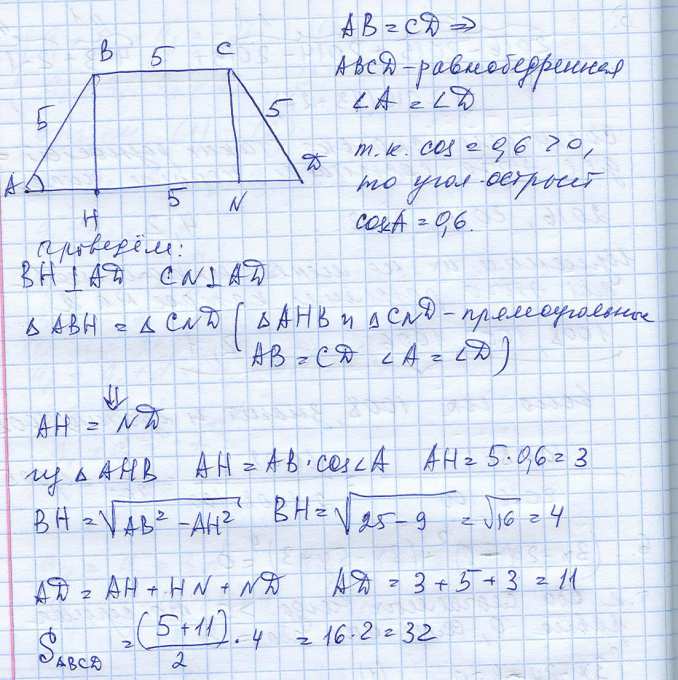 AB = CD ⇒
B 5 C
ABCD - равнобедренная
5 5
∠A = ∠D
т.к. cos = 0,6 > 0,
A D
то угол острый
H 5 N
cosA = 0,6.
проведём:
BH ⊥ AD CN ⊥ AD
△ ABH = △ CND ( △ AHB и △ CND - прямоугольные
AB = CD ∠A = ∠D )
⇓
AH = ND
из △ AHB AH = AB · cos∠A AH = 5 · 0,6 = 3
BH = √AB² - AH² BH = √25 - 9 = √16 = 4
AD = AH + HN + ND AD = 3 + 5 + 3 = 11
S_ABCD = (5 + 11)/2 · 4 = 16 · 2 = 32